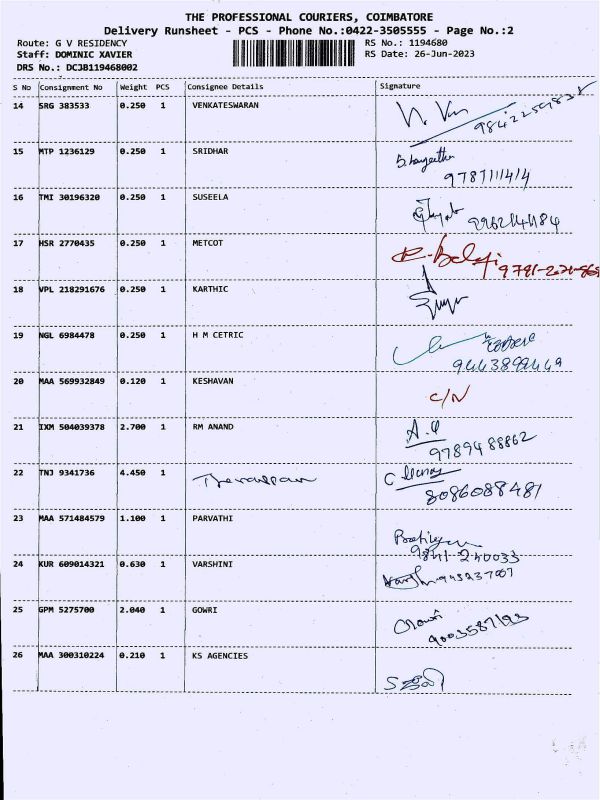 THE PROFESSIONAL COURIERS, COIMBATORE
Delivery Runsheet - PCS - Phone No.:0422-3505555 - Page No.:2
Route: G V RESIDENCY RS No.: 1194680
Staff: DOMINIC XAVIER RS Date: 26-Jun-2023
DRS No.: DCJB119468002
S No Consignment No Weight PCS Consignee Details Signature
14 SRG 383533 0.250 1 VENKATESWARAN
15 MTP 1236129 0.250 1 SRIDHAR
9787111414
16 TMI 30196320 0.250 1 SUSEELA
17 HSR 2770435 0.250 1 METCOT
R. Balaji
18 VPL 218291676 0.250 1 KARTHIC
19 NGL 6984478 0.250 1 H M CETRIC
9443899449
20 MAA 569932849 0.120 1 KESHAVAN
C/N
21 IXM 504039378 2.700 1 RM ANAND
9789488862
22 TNJ 9341736 4.450 1
8086088481
23 MAA 571484579 1.100 1 PARVATHI
9841-240033
24 KUR 609014321 0.630 1 VARSHINI
25 GPM 5275700 2.040 1 GOWRI
Gowri
9003587193
26 MAA 300310224 0.210 1 KS AGENCIES